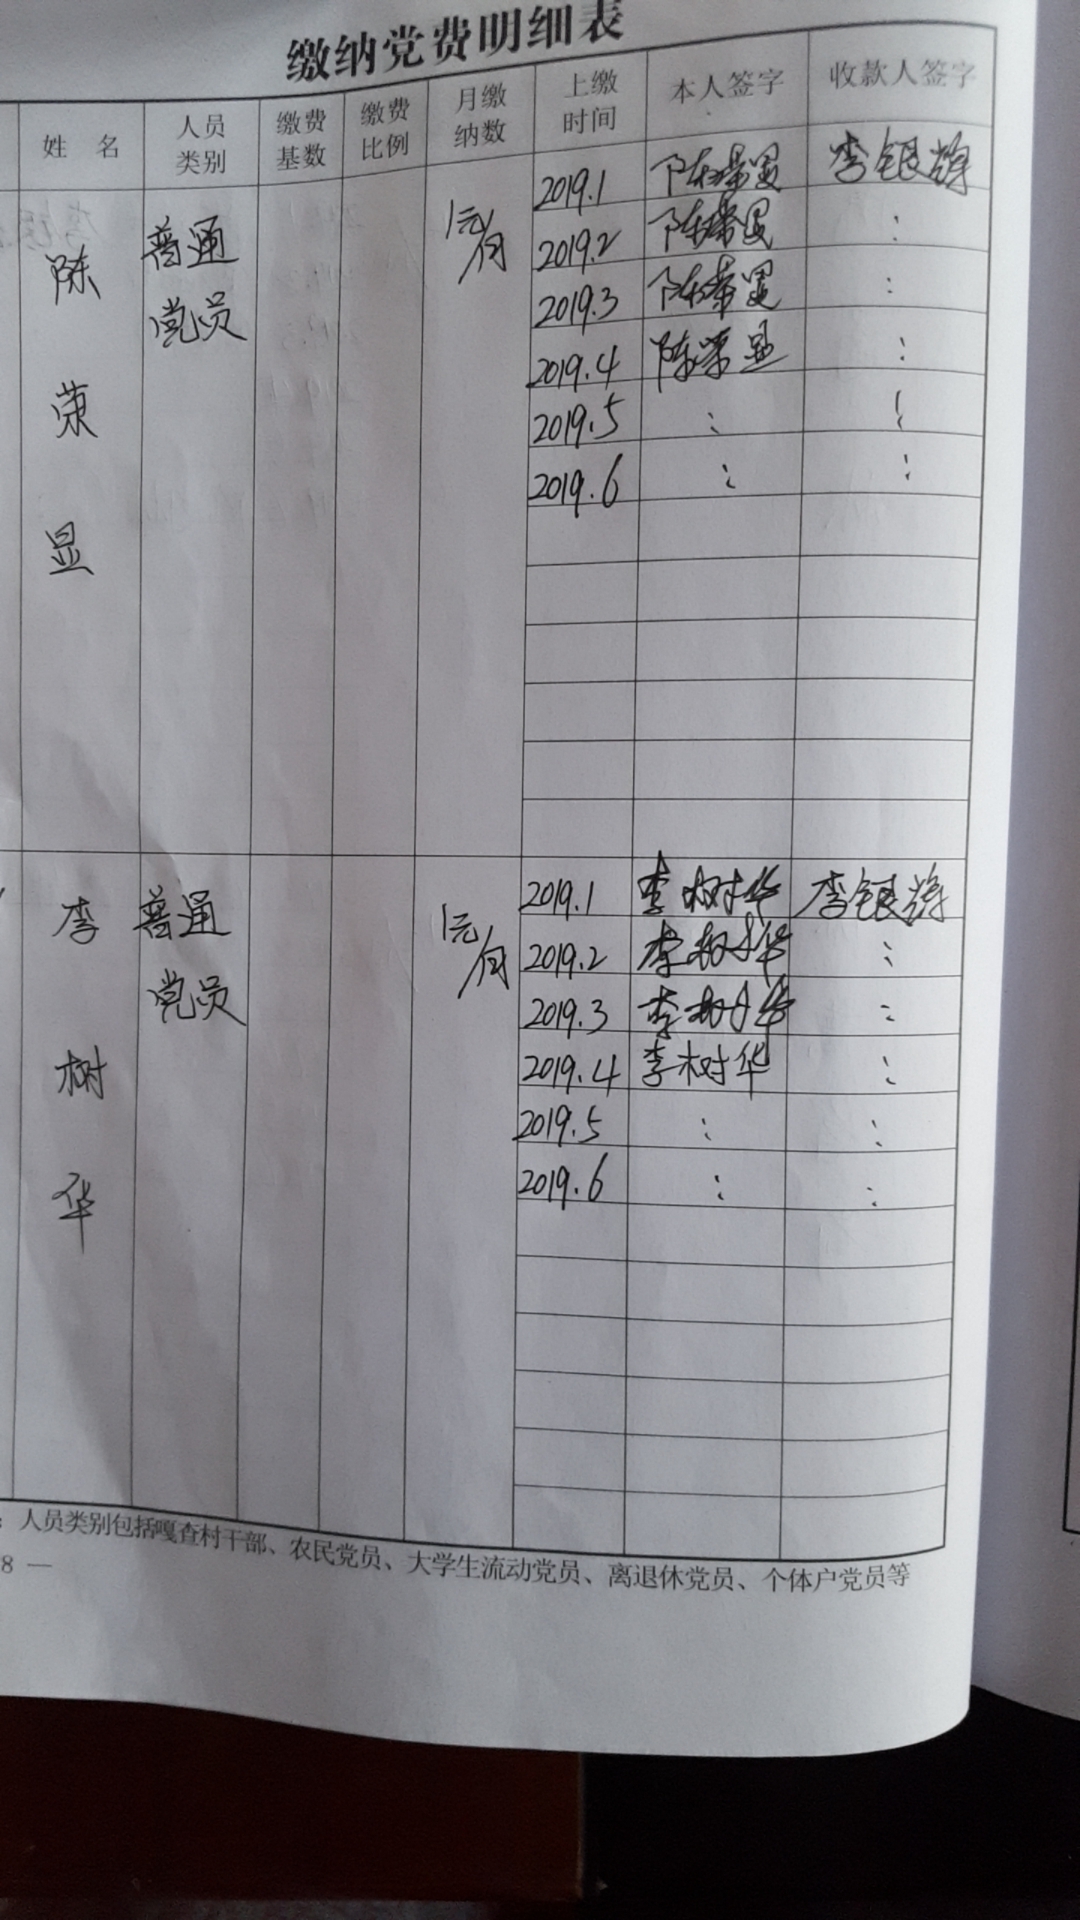 缴纳党费明细表
姓 名 人员类别 缴费基数 缴费比例 月缴纳数 上缴时间 本人签字 收款人签字
陈荣显 普通党员 1元/月 2019.1 陈荣显 李银辉
2019.2 陈荣显 :
2019.3 陈荣显 :
2019.4 陈荣显 :
2019.5 : :
2019.6 : :
李树华 普通党员 1元/月 2019.1 李树华 李银辉
2019.2 李树华 :
2019.3 李树华 :
2019.4 李树华 :
2019.5 : :
2019.6 : :
：人员类别包括嘎查村干部、农民党员、大学生流动党员、离退休党员、个体户党员等
8 —